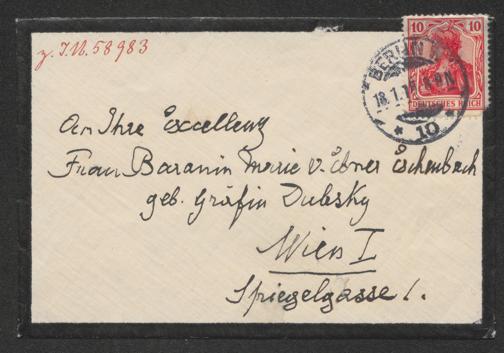 z. I.N. 58983
10 10
DEUTSCHES REICH
BERLIN
18.1.1
* 10 *
An Ihre Excellenz
Frau Baronin Marie v. Ebner Eschenbach
geb. Gräfin Dubsky
Wien I
Spiegelgasse 1.